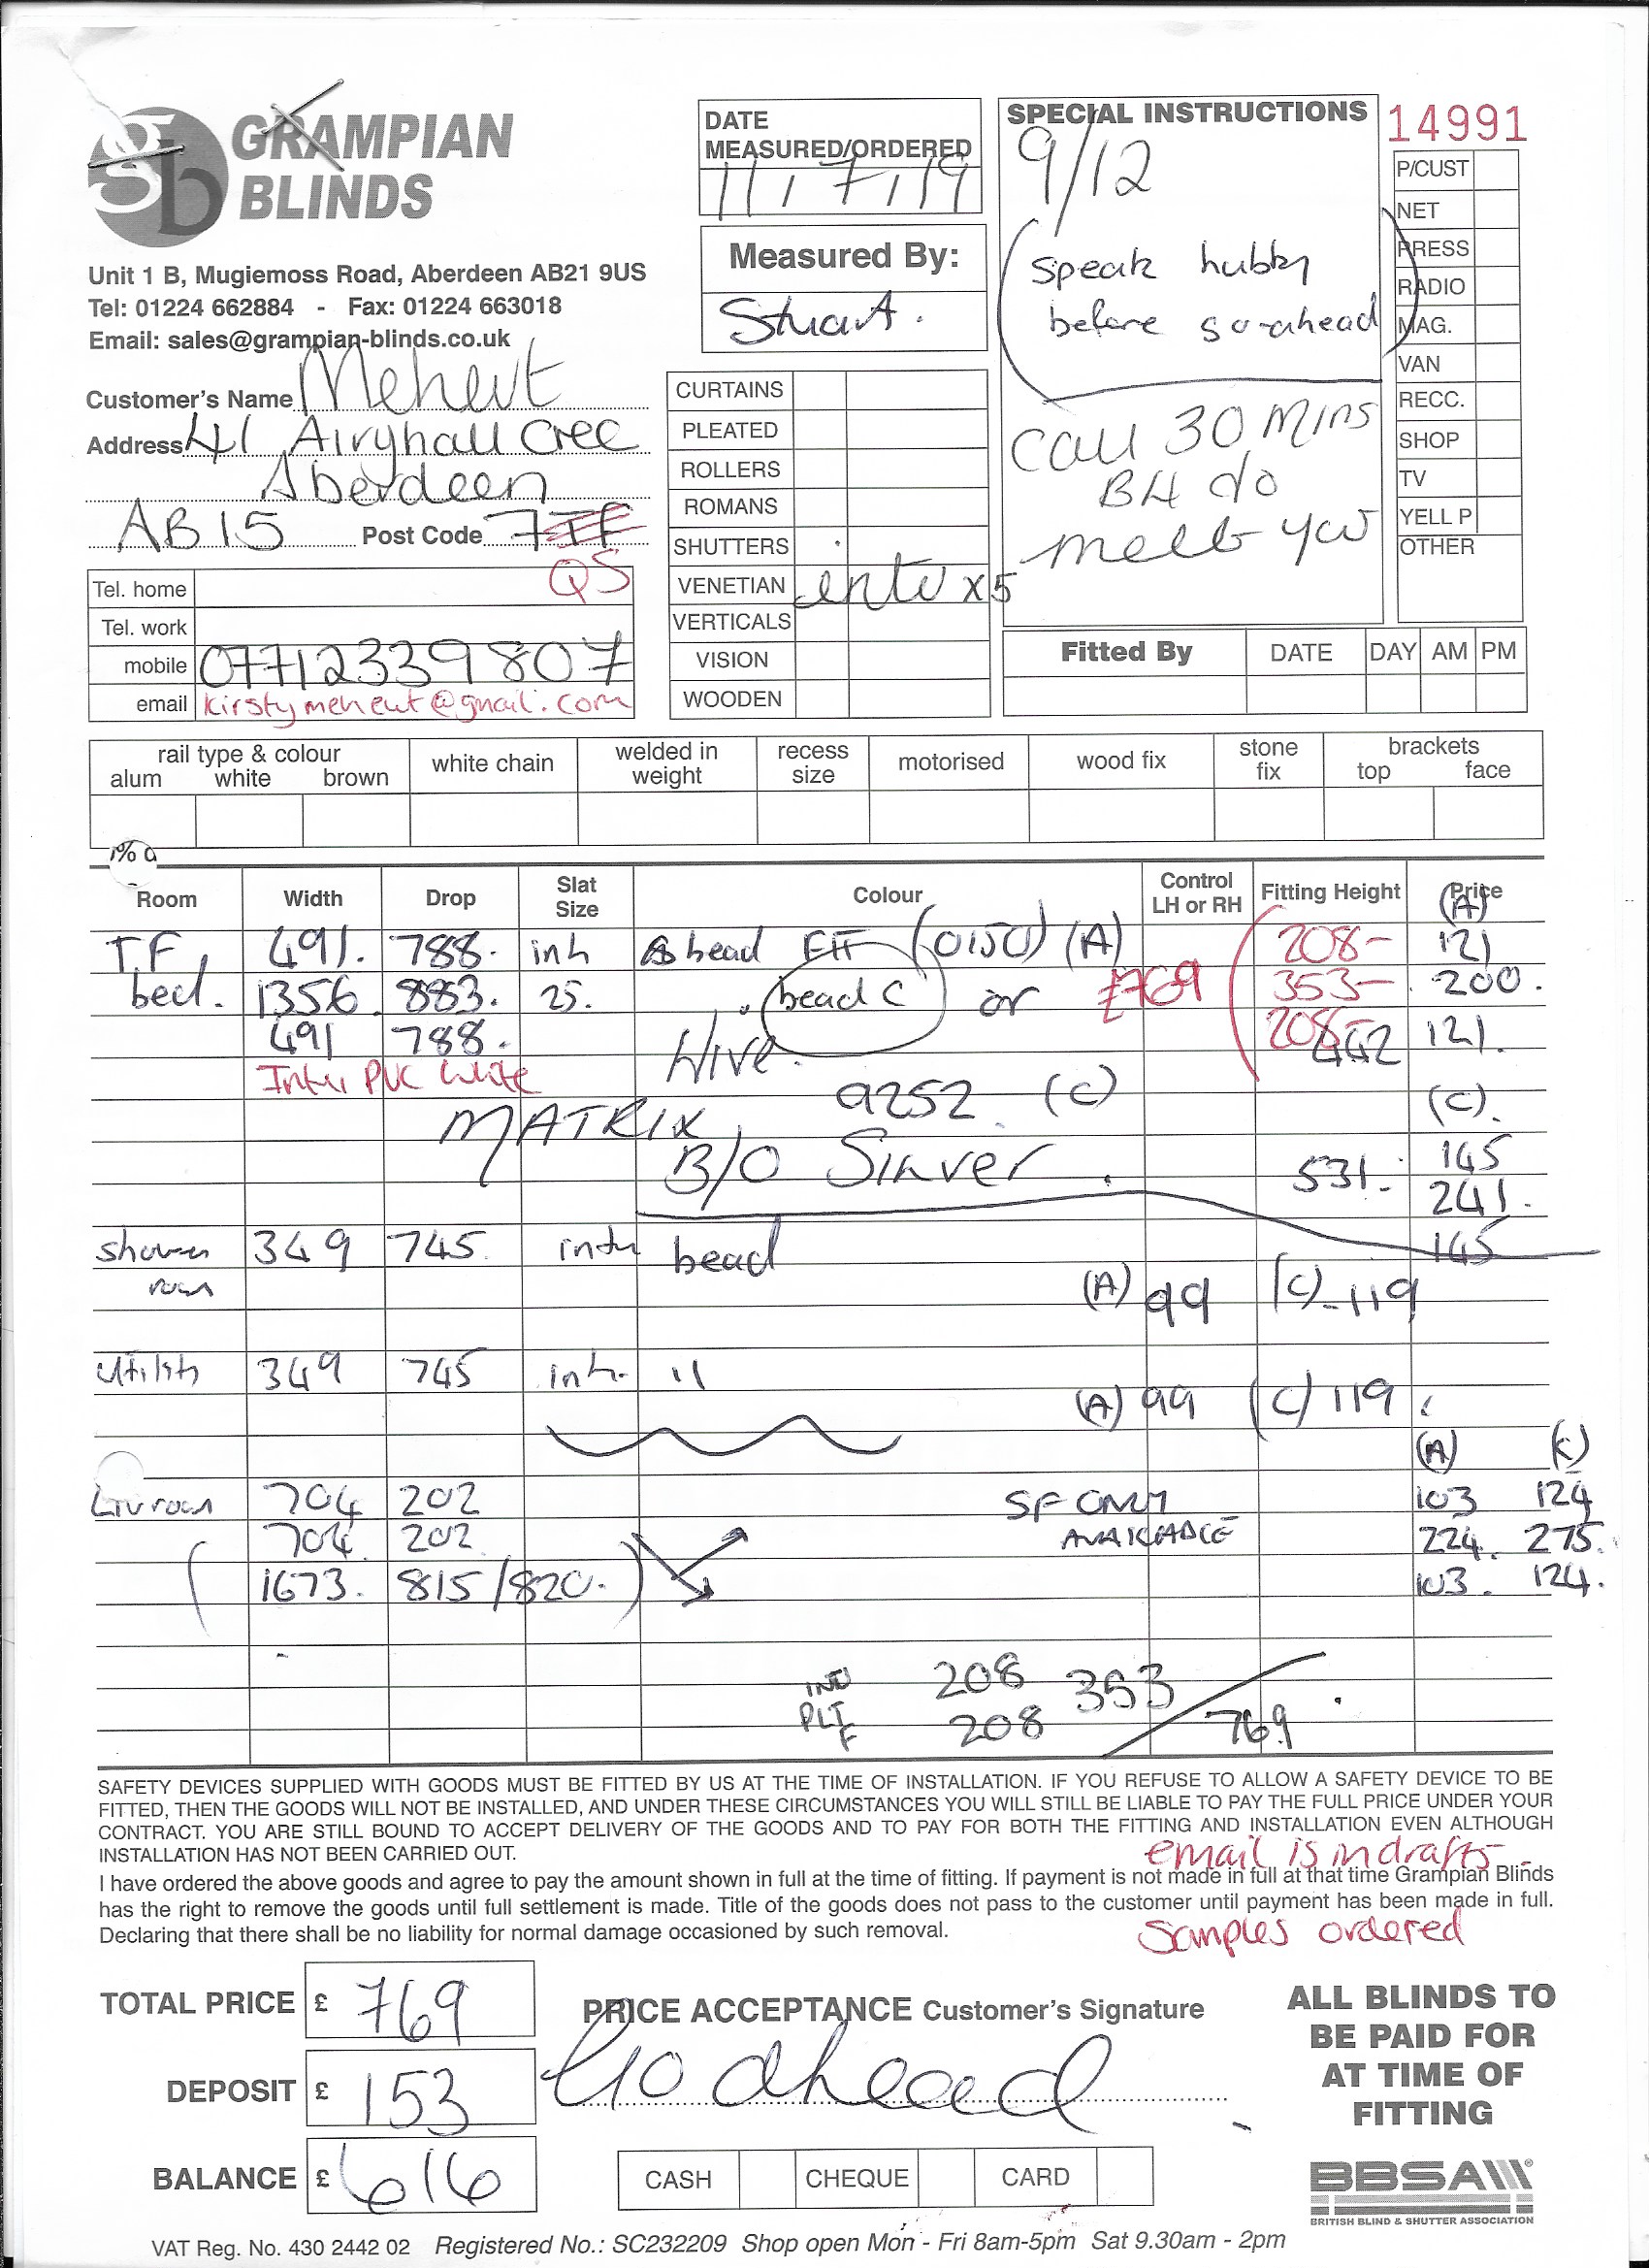 GRAMPIAN
BLINDS
Unit 1 B, Mugiemoss Road, Aberdeen AB21 9US
Tel: 01224 662884 - Fax: 01224 663018
Email: sales@grampian-blinds.co.uk
Customer's Name Mehewt
Address 41 Airyhall Cree
Aberdeen
AB15 Post Code 7
QS
Tel. home
Tel. work
mobile 07712339807
email kirstymehewt@gmail.com
DATE
MEASURED/ORDERED
11/7/19
Measured By:
Stuart.
CURTAINS
PLEATED
ROLLERS
ROMANS
SHUTTERS
VENETIAN x5
VERTICALS
VISION
WOODEN
SPECIAL INSTRUCTIONS
9/12
(speak hubby
before go-ahead)
Call 30 mins
B4 do
meet you
14991
P/CUST
NET
PRESS
RADIO
MAG.
VAN
RECC.
SHOP
TV
YELL P
OTHER
Fitted By DATE DAY AM PM
rail type & colour
alum white brown
white chain
welded in
weight
recess
size
motorised
wood fix
stone
fix
brackets
top face
Room Width Drop Slat Size Colour Control LH or RH Fitting Height Price
(A)
T.F. 491. 788. inh bead FIT (0150) (A) 208- 121
bed. 1356 883. 25. bead C or £769 353- 200.
491 788. Hive. 208- 442 121.
Inter PVC White
9252 (C) (C).
MATRIX
B/O Silver. 531. 145
241.
145
Shower room 349 745 intu bead
(A) 99 (C) - 119
Utility 349 745 int. "
(A) 99 (C) 119.
(A) (C)
Liv room 704 202 SF ONLY 103 124
704 202 AVAILABLE 224. 275.
(1673. 815/820.) 103. 124.
INTU 208 353
PLT 208 769
F
SAFETY DEVICES SUPPLIED WITH GOODS MUST BE FITTED BY US AT THE TIME OF INSTALLATION. IF YOU REFUSE TO ALLOW A SAFETY DEVICE TO BE
FITTED, THEN THE GOODS WILL NOT BE INSTALLED, AND UNDER THESE CIRCUMSTANCES YOU WILL STILL BE LIABLE TO PAY THE FULL PRICE UNDER YOUR
CONTRACT. YOU ARE STILL BOUND TO ACCEPT DELIVERY OF THE GOODS AND TO PAY FOR BOTH THE FITTING AND INSTALLATION EVEN ALTHOUGH
INSTALLATION HAS NOT BEEN CARRIED OUT.
email is in drafts -
I have ordered the above goods and agree to pay the amount shown in full at the time of fitting. If payment is not made in full at that time Grampian Blinds
has the right to remove the goods until full settlement is made. Title of the goods does not pass to the customer until payment has been made in full.
Declaring that there shall be no liability for normal damage occasioned by such removal.
Samples ordered
TOTAL PRICE £ 769
DEPOSIT £ 153
BALANCE £ 616
PRICE ACCEPTANCE Customer's Signature
Go ahead
CASH CHEQUE CARD
ALL BLINDS TO
BE PAID FOR
AT TIME OF
FITTING
BBSA
BRITISH BLIND & SHUTTER ASSOCIATION
VAT Reg. No. 430 2442 02 Registered No.: SC232209 Shop open Mon - Fri 8am-5pm Sat 9.30am - 2pm